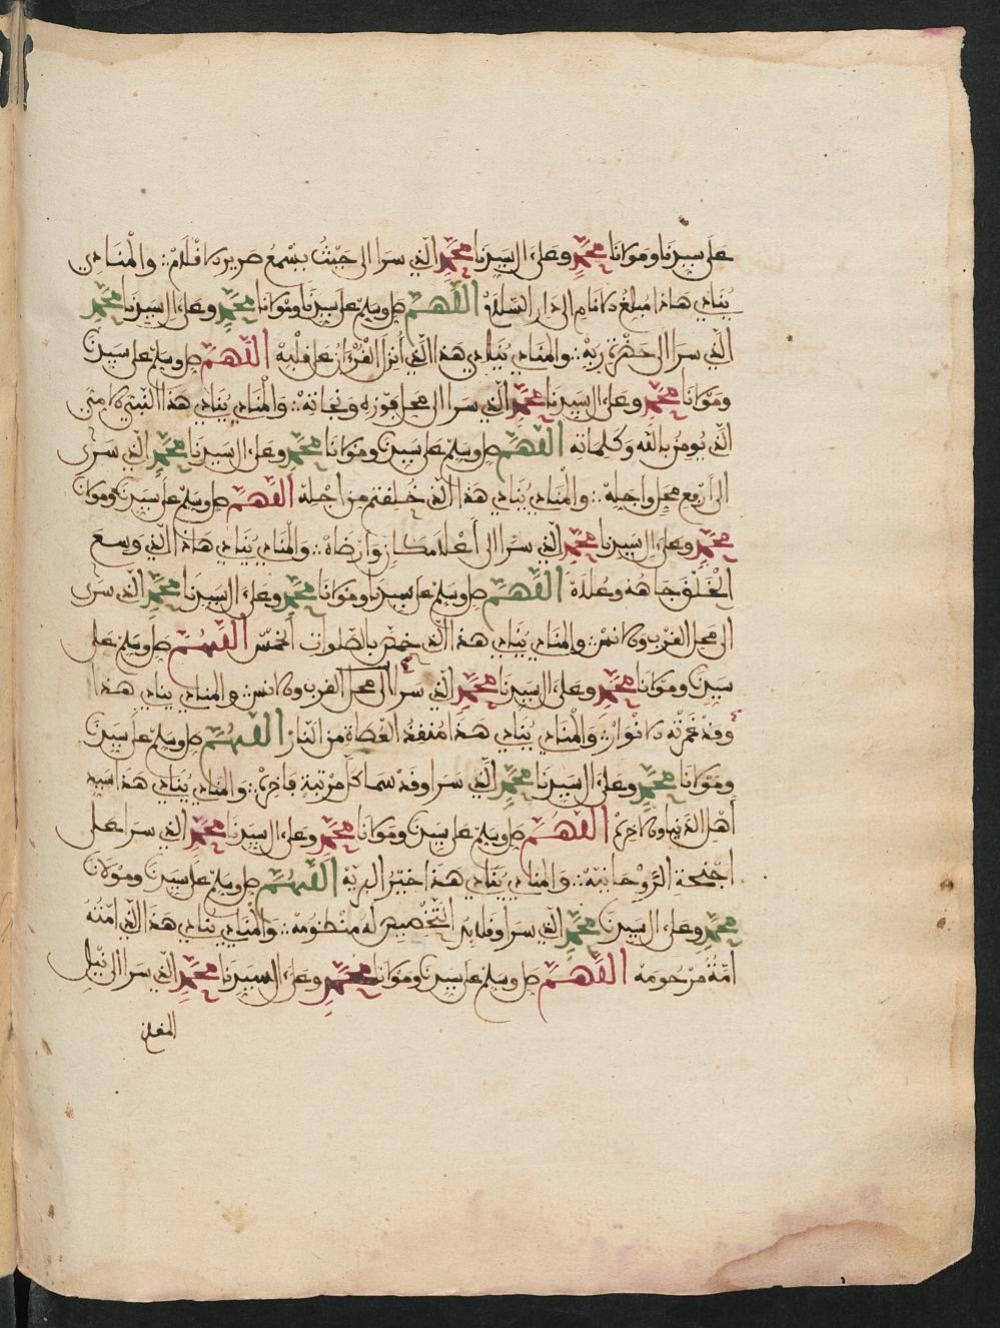 على سيدنا ومولانا محمد وعلى ءال سيدنا محمد الذي سرا الى حيث يسمع صرير الاقلام ؞ والمنادي
ينادي هاذا مبلغ الانام الى دار السلام اللهم صل وسلم على سيدنا ومولانا محمد وعلى ءال سيدنا محمد
الذي سرا الى حضرة ربه ؞ والمنادي ينادي هذا الذي أنزل القرءان على قلبه اللهم صل وسلم على سيدنا
ومولانا محمد وعلى ءال سيدنا محمد الذي سرا الى محل فوزه ونجاته ؞ والمنادي ينادي هذا النبي الامي
الذي يومن بالله وكلماته اللهم صل وسلم على سيدنا ومولانا محمد وعلى ءال سيدنا محمد الذي سرى
الى أرفع محل واجله ؞ والمنادي ينادي هذا الذي خلقتم من اجله اللهم صل وسلم على سيدنا ومولانا
محمد وعلى ءال سيدنا محمد الذي سرا الى أعلا مكان وارضاه ؞ والمنادي ينادي هاذا الذي وسع
الخلق جاهه وعلاه اللهم صل وسلم على سيدنا ومولانا محمد وعلى ءال سيدنا محمد الذي سرى
الى محل القرب والانس ؞ والمنادي ينادي هذا الذي خص بالصلوات الخمس اللهم صل وسلم على
سيدنا ومولانا محمد وعلى ءال سيدنا محمد الذي سرا الى محل القرب والانس ؞ والمنادي ينادي هذا
وقد غمرته الانوار ؞ والمنادي ينادي هذا منقذ العصاة من النار اللهم صل وسلم على سيدنا
ومولانا محمد وعلى ءال سيدنا محمد الذي سرا وقد سما كل مرتبة فاخرة ؞ والمنادي ينادي هذا سيد
أهل الدنيا والاخرة اللهم صل وسلم على سيدنا ومولانا محمد وعلى ءال سيدنا محمد الذي سرا على
اجنحة الروحانية ؞ والمنادي ينادي هذا خير البرية اللهم صل وسلم على سيدنا ومولانا
محمد وعلى ءال سيدنا محمد الذي سرا وقلايد التخصيص له منظومه ؞ والمنادي ينادي هذا الذي امته
امة مرحومه اللهم صل وسلم على سيدنا ومولانا محمد وعلى ءال سيدنا محمد الذي سرا الى نيل